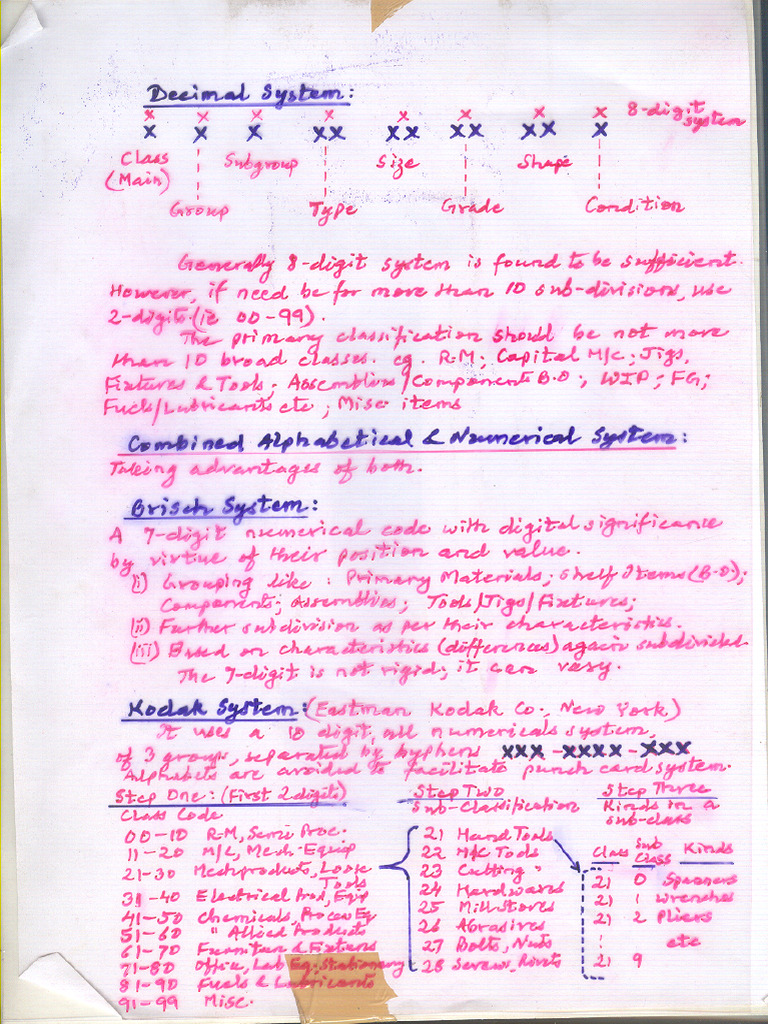 Decimal System:
x x x x x x x x 8-digit
x x x xx xx xx xx x system
Class Subgroup Size Shape
(Main)
Group Type Grade Condition
Generally 8-digit system is found to be sufficient.
However, if need be for more than 10 sub-divisions, use
2-digits (ie 00-99).
The primary classification should be not more
than 10 broad classes. eg. R.M; Capital M/c; Jigs,
Fixtures & Tools; Assemblies/Component B.O; WIP; FG;
Fuels/Lubricants etc; Misc items
Combined Alphabetical & Numerical System:
Taking advantages of both.
Brisch System:
A 7-digit numerical code with digital significance
by virtue of their position and value.
(i) Grouping like: Primary Materials; Shelf Items (B.O.);
Components; Assemblies; Tools/Jigs/Fixtures;
(ii) Further subdivision as per their characteristics.
(iii) Based on characteristics (differences) again subdivided.
The 7-digit is not rigid; it can vary.
Kodak System: (Eastman Kodak Co., New York)
It uses a 10 digit, all numericals system,
of 3 groups, separated by hyphens xxx - xxxx - xxx
Alphabets are avoided to facilitate punch card system.
Step One: (First 2 digits) Step Two Step Three
Class Code Sub-Classification Kinds in a
sub-class
00-10 R-M, Semi Proc. 21 Hand Tools
11-20 M/c, Mech-Equip 22 M/c Tools Class Sub Class Kinds
21-30 Mech products, Loose Tools 23 Cutting " 21 0 Spanners
31-40 Electrical Prod, Eqip 24 Hardwares 21 1 Wrenches
41-50 Chemicals, Process Eq 25 Mill Stores 21 2 Pliers
51-60 " Allied Products 26 Abrasives
61-70 Furniture & Fixtures 27 Bolts, Nuts etc
71-80 Office, Lab Eq. Stationary 28 Screws, Rivets 21 9
81-90 Fuels & Lubricants
91-99 Misc.